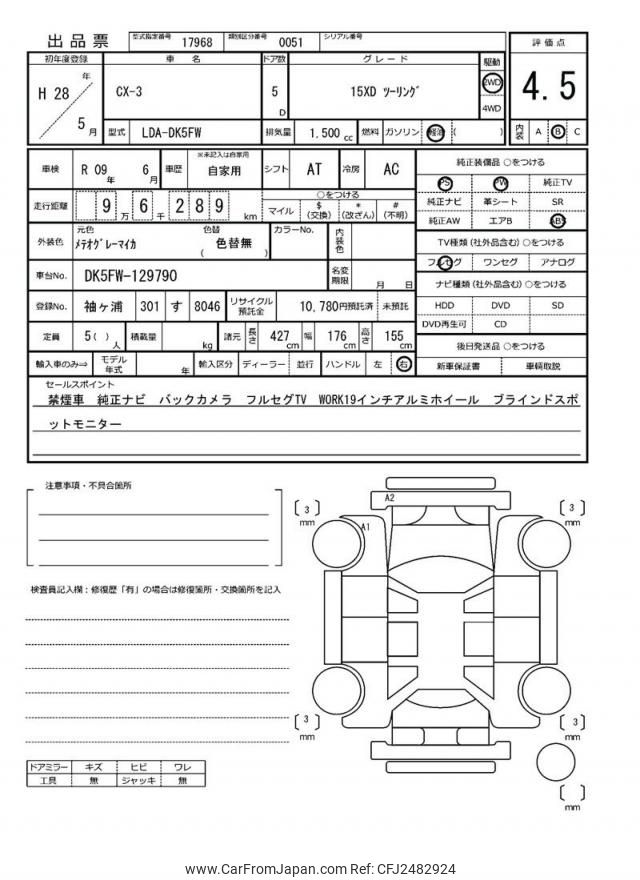 出品票 型式指定番号 17968 類別区分番号 0051 シリアル番号
初年度登録 車 名 ドア数 グレード 駆動 評価点
H 28 年 5 月 CX-3 5 D 15XD ツーリング 2WD 4WD 4.5
型式 LDA-DK5FW 排気量 1.500 cc 燃料 ガソリン 軽油 ( ) 内装 A B C
車検 R 09 年 6 月 車歴 ※未記入は自家用 自家用 シフト AT 冷房 AC
走行距離 9 万 6 千 2 8 9 km ○をつける
マイル $ (交換) * (改ざん) # (不明)
外装色 元色 メテオグレーマイカ 色替 ( 色替無 ) カラーNo. 内装色
車台No. DK5FW-129790 名変期限 月 日
登録No. 袖ヶ浦 301 す 8046 リサイクル預託金 10,780円預託済 未預託
定員 5( ) 人 積載量 kg 諸元 長さ 427 cm 幅 176 cm 高さ 155 cm
輸入車のみ⇒ モデル年式 年 輸入区分 ディーラー 並行 ハンドル 左 右
純正装備品 ○をつける
PS PW 純正TV
純正ナビ 革シート SR
純正AW エアB ABS
TV種類(社外品含む)○をつける
フルセグ ワンセグ アナログ
ナビ種類(社外品含む)○をつける
HDD DVD SD
DVD再生可 CD
後日発送品 ○をつける
新車保証書 車輌取説
セールスポイント
禁煙車 純正ナビ バックカメラ フルセグTV WORK19インチアルミホイール ブラインドスポ
ットモニター
注意事項・不具合箇所
検査員記入欄：修復歴「有」の場合は修復箇所・交換箇所を記入
A2
A1
( 3 ) mm
( 3 ) mm
( 3 ) mm
( 3 ) mm
( ) mm
ドアミラー キズ ヒビ ワレ
工具 無 ジャッキ 無
www.CarFromJapan.com Ref: CFJ2482924